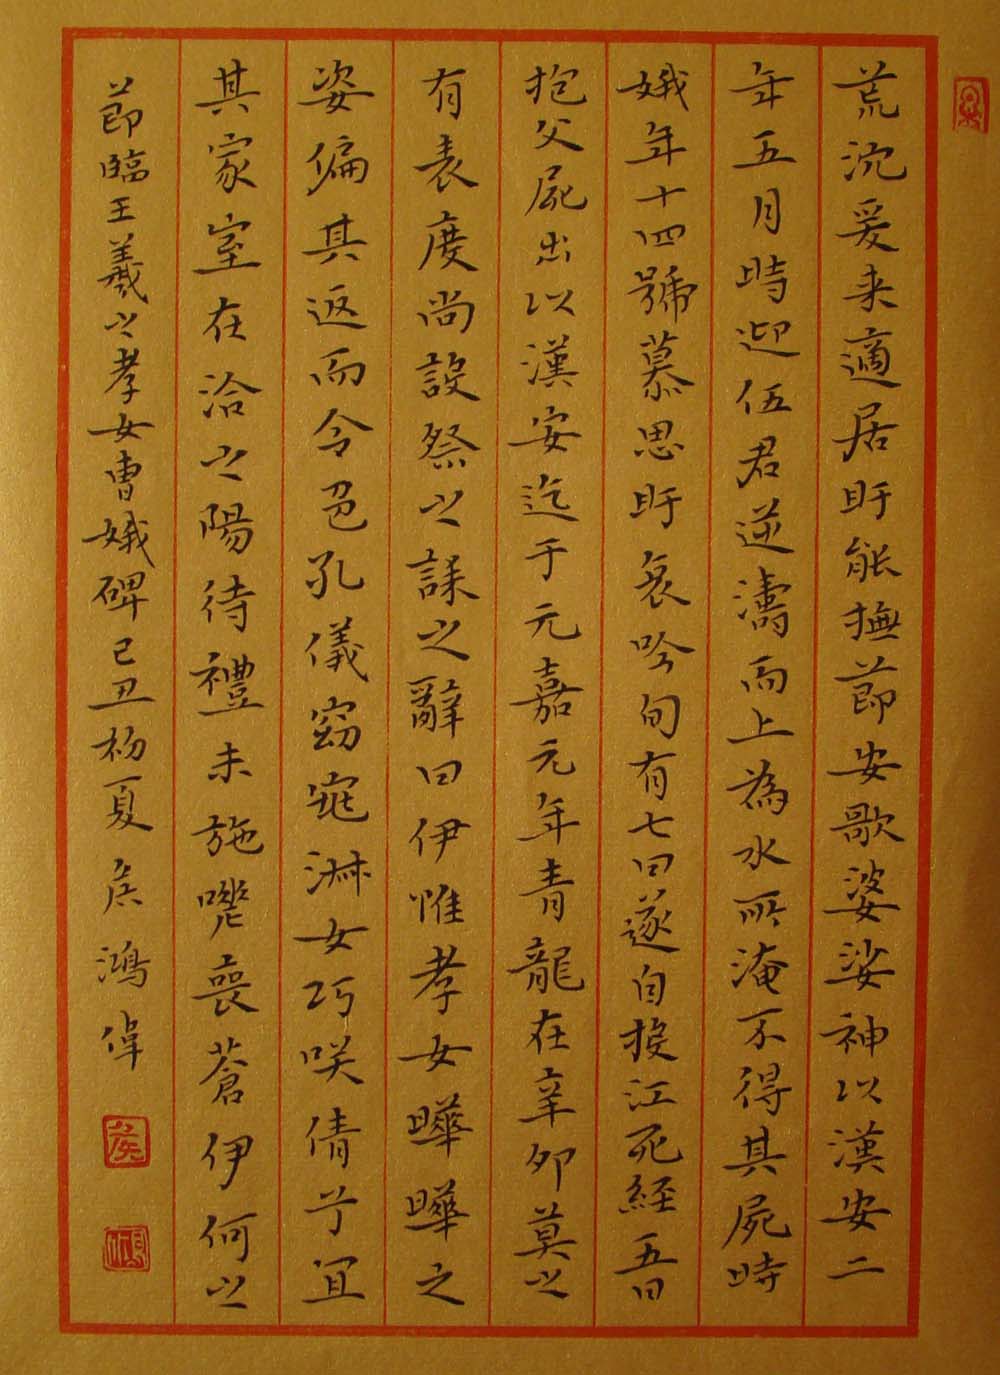 荒沈爰来適居盱能撫節安歌婆娑神以漢安二
年五月時迎伍君逆濤而上為水所淹不得其屍時
娥年十四號慕思盱哀吟旬有七日遂自投江死經五日
抱父屍出以漢安迄于元嘉元年青龍在辛卯莫之
有表度尚設祭之誄之辭曰伊惟孝女曄曄之
姿偏其返而令色孔儀窈窕淋女巧咲倩兮宜
其家室在洽之陽待禮未施嗟喪蒼伊何之
節臨王羲之孝女曹娥碑己丑初夏侯鴻偉
侯